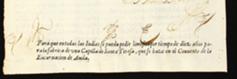 Para que en todas las Indias se pueda pedir limosna por tiempo de diez años para
la fabrica de una Capilla de Santa Teresa, que se haze en el Convento de la
Encarnacion de Auila.